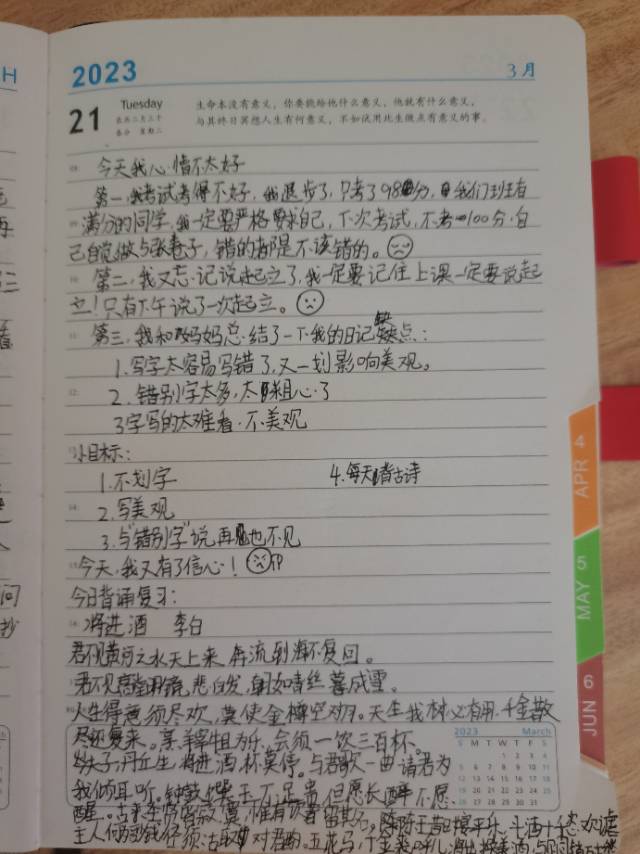 2023
3月
21
Tuesday
农历二月三十
春分 星期二
生命本没有意义，你要能给他什么意义，他就有什么意义，
与其终日冥想人生有何意义，不如试用此生做点有意义的事。
今天我心情不太好
第一，我考试考得不好，我退步了，只考了98分，我们班有
满分的同学，我一定要严格要求自己，下次考试，不考100分，自
己自觉做5张卷子，错的都是不该错的。
第二，我又忘记说起立了，我一定要记住上课一定要说起
立！只有下午说了一次起立。
第三，我和妈妈总结了一下我的日记缺点：
1.写字太容易写错了，又一划影响美观。
2.错别字太多，太粗心了
3字写的太难看，不美观
小目标：
1.不划字
4.每天背古诗
2.写美观
3.与“错别字”说再也不见
今天，我又有了信心！
今日背诵复习：
将进酒 李白
君不见黄河之水天上来，奔流到海不复回。
君不见高堂明镜悲白发，朝如青丝暮成雪。
人生得意须尽欢，莫使金樽空对月。天生我材必有用，千金散
尽还复来。烹羊宰牛且为乐，会须一饮三百杯。
岑夫子，丹丘生，将进酒，杯莫停。与君歌一曲，请君为
我倾耳听。钟鼓馔玉不足贵，但愿长醉不愿
醒。古来圣贤皆寂寞，惟有饮者留其名。陈王昔时宴平乐，斗酒十千恣欢谑
主人何为言少钱，径须沽取对君酌。五花马，千金裘
2023
March
S M T W T F S
APR 4
MAY 5
JUN 6